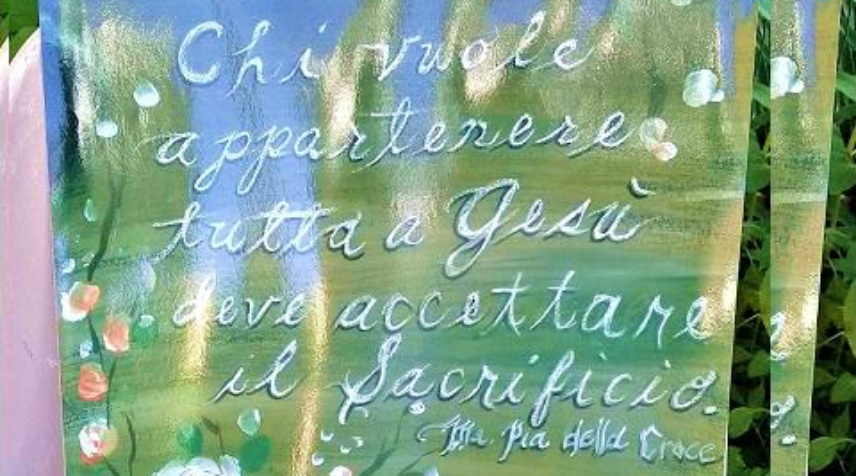 Chi vuole
appartenere
tutta a Gesù
deve accettare
il Sacrificio.
Ma. Pia della Croce